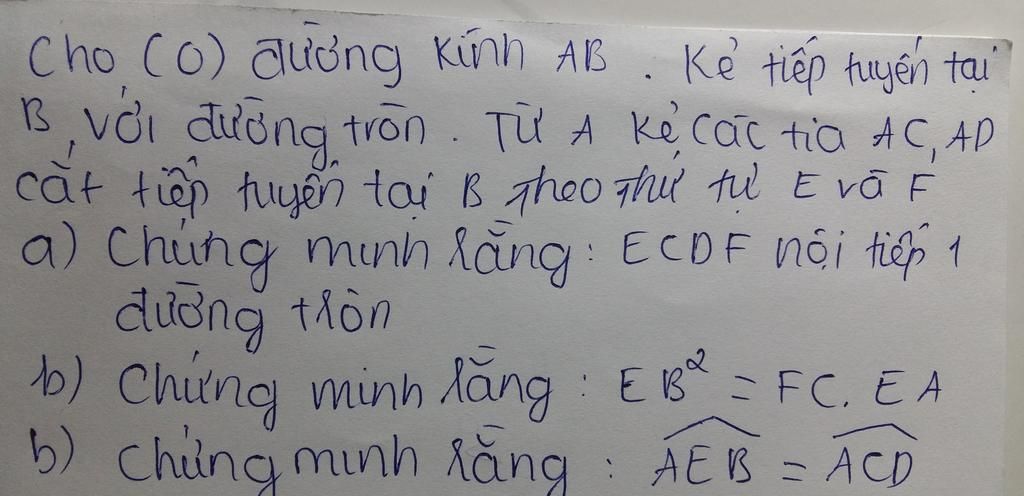 Cho (O) đường kính AB. Kẻ tiếp tuyến tại
B, với đường tròn. Từ A kẻ các tia AC, AD
cắt tiếp tuyến tại B theo thứ tự E và F
a) Chứng minh rằng: ECDF nội tiếp 1
đường tròn
b) Chứng minh rằng: EB² = FC. EA
b) Chứng minh rằng: \widehat{AEB} = \widehat{ACD}